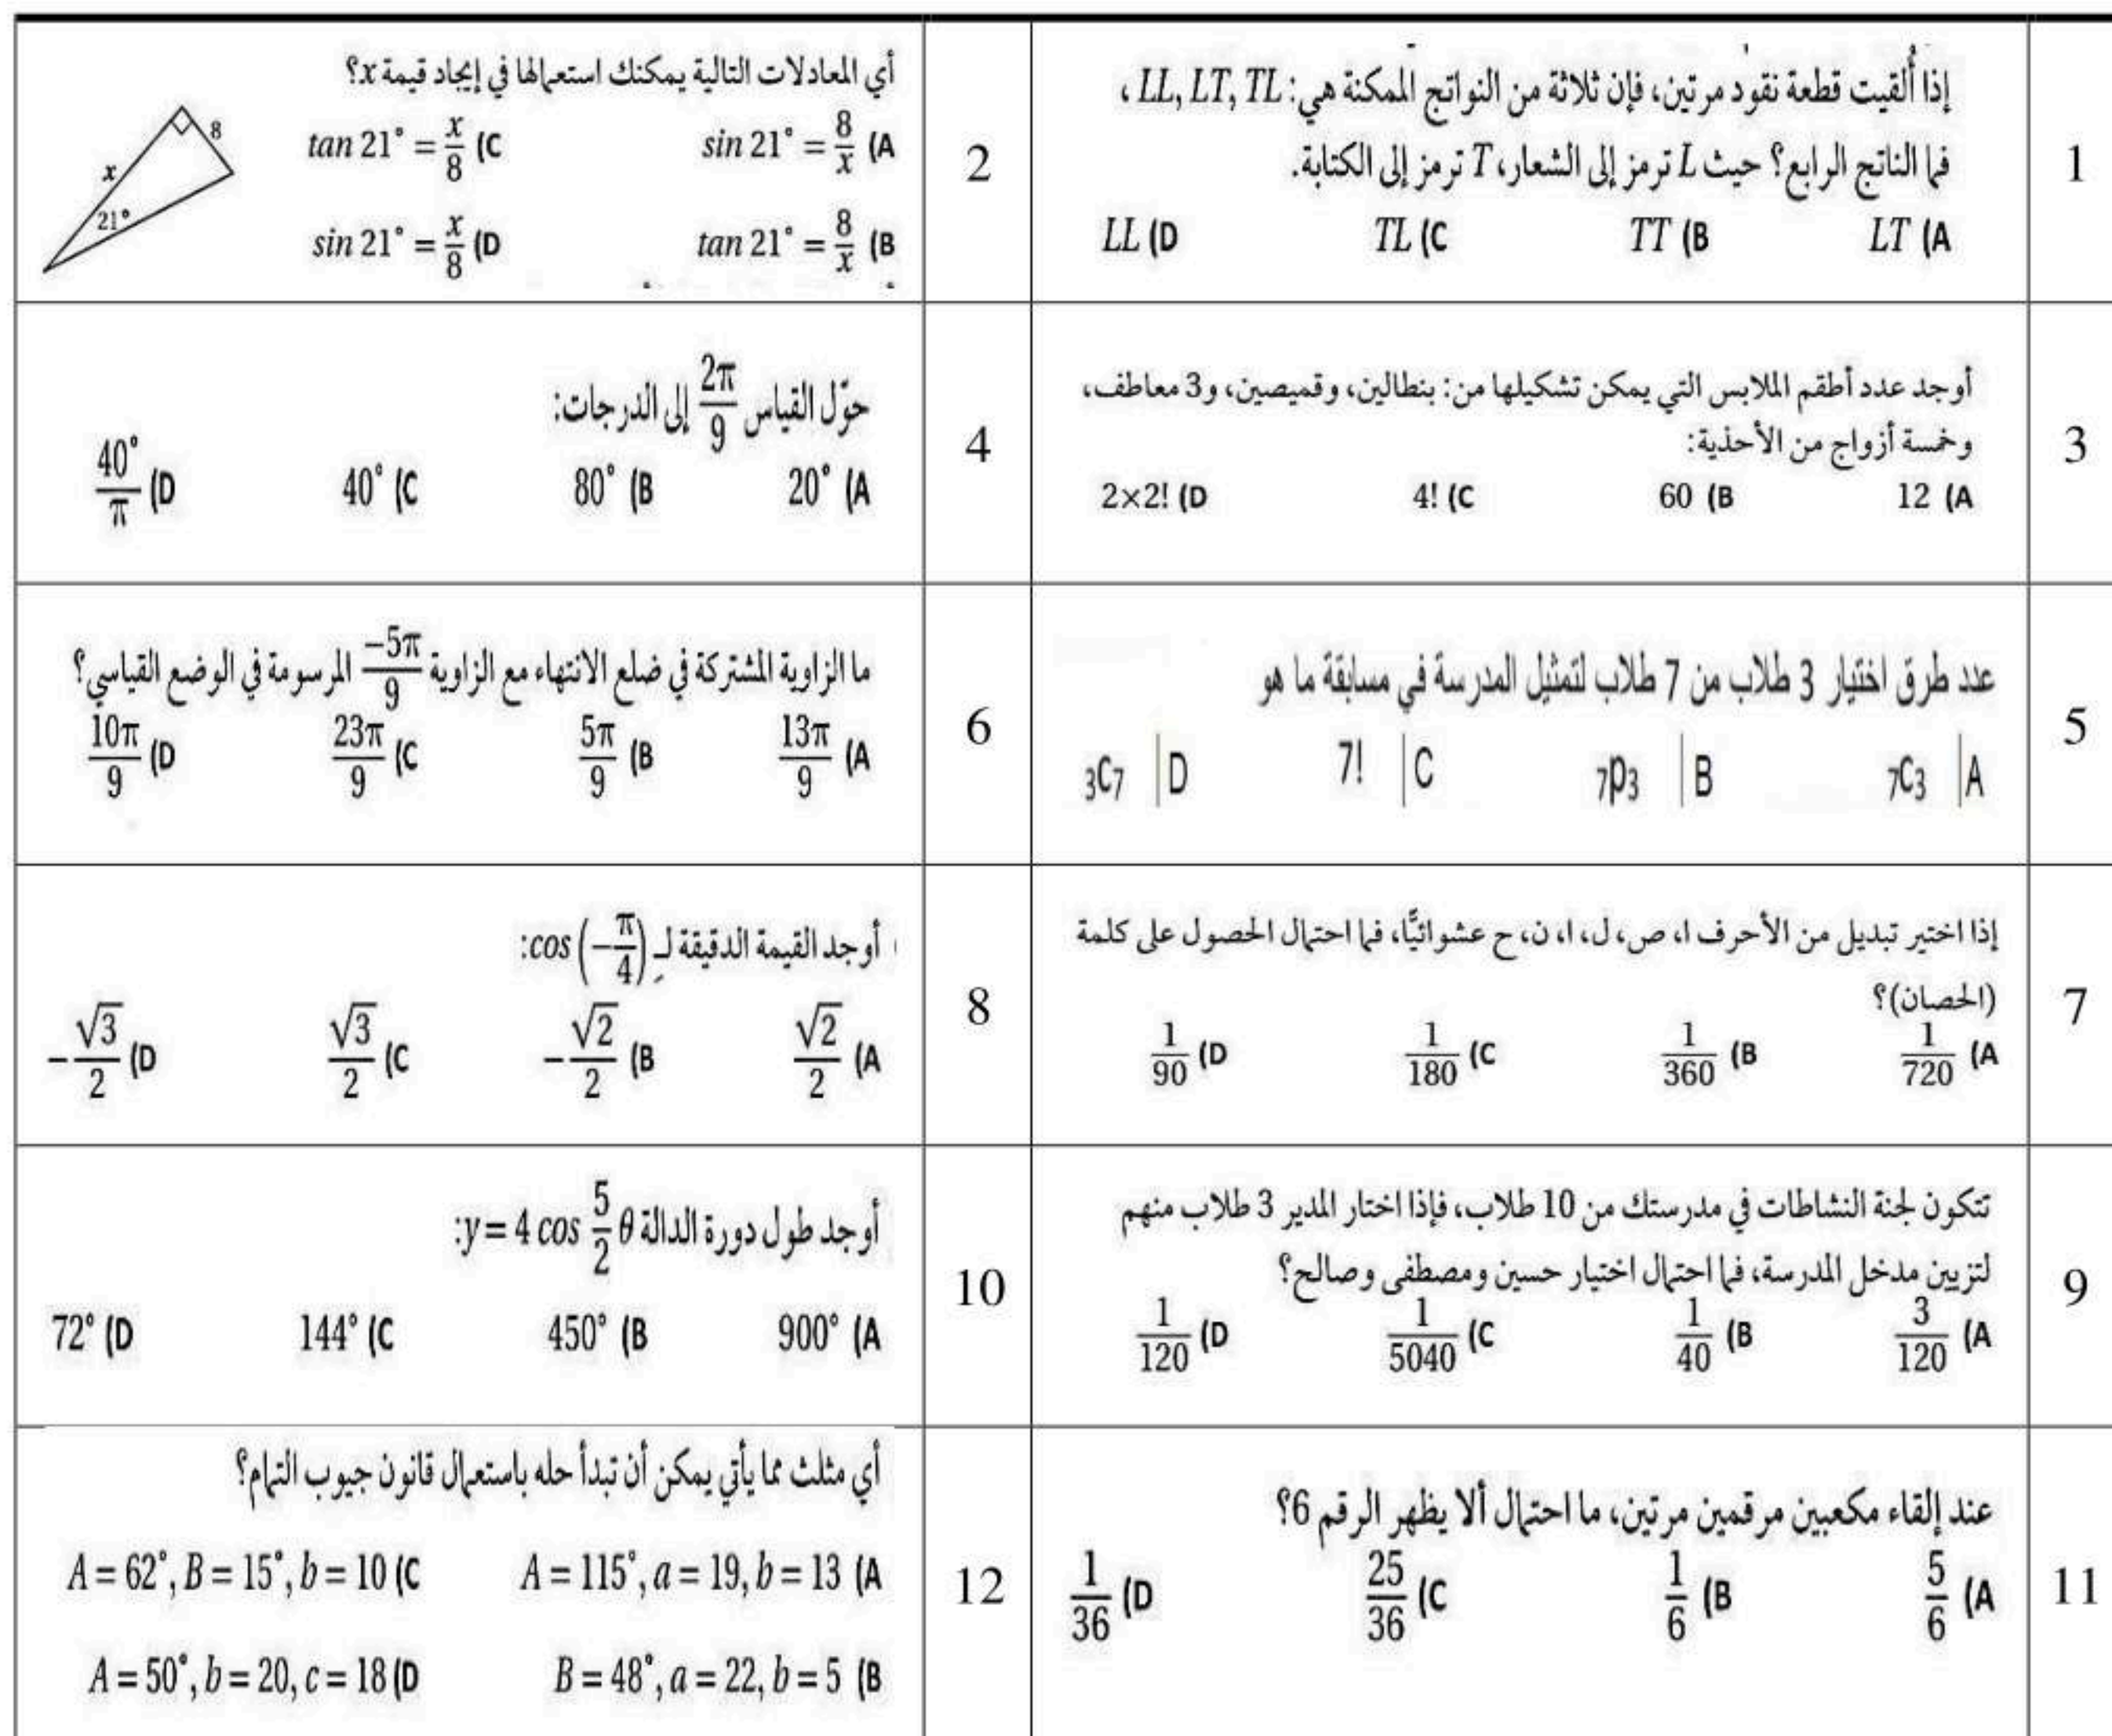 1
إذا أُلقيت قطعة نقود مرتين، فإن ثلاثة من النواتج الممكنة هي: LL, LT, TL ،
فما الناتج الرابع؟ حيث L ترمز إلى الشعار، T ترمز إلى الكتابة.
LT (A TT (B TL (C LL (D
2
أي المعادلات التالية يمكنك استعمالها في إيجاد قيمة x؟
sin 21° = 8/x (A tan 21° = x/8 (C
tan 21° = 8/x (B sin 21° = x/8 (D
8
x
21°
3
أوجد عدد أطقم الملابس التي يمكن تشكيلها من: بنطالين، وقميصين، و3 معاطف،
وخمسة أزواج من الأحذية:
12 (A 60 (B 4! (C 2×2! (D
4
حوّل القياس 2π/9 إلى الدرجات:
20° (A 80° (B 40° (C 40°/π (D
5
عدد طرق اختيار 3 طلاب من 7 طلاب لتمثيل المدرسة في مسابقة ما هو
₇C₃ |A ₇p₃ |B 7! |C ₃C₇ |D
6
ما الزاوية المشتركة في ضلع الانتهاء مع الزاوية −5π/9 المرسومة في الوضع القياسي؟
13π/9 (A 5π/9 (B 23π/9 (C 10π/9 (D
7
إذا اختير تبديل من الأحرف ا، ص، ل، ا، ن، ح عشوائيًّا، فما احتمال الحصول على كلمة
(الحصان)؟
1/720 (A 1/360 (B 1/180 (C 1/90 (D
8
أوجد القيمة الدقيقة لـ cos (−π/4):
√2/2 (A −√2/2 (B √3/2 (C −√3/2 (D
9
تتكون لجنة النشاطات في مدرستك من 10 طلاب، فإذا اختار المدير 3 طلاب منهم
لتزيين مدخل المدرسة، فما احتمال اختيار حسين ومصطفى وصالح؟
3/120 (A 1/40 (B 1/5040 (C 1/120 (D
10
أوجد طول دورة الدالة y = 4 cos 5/2 θ:
900° (A 450° (B 144° (C 72° (D
11
عند إلقاء مكعبين مرقمين مرتين، ما احتمال ألا يظهر الرقم 6؟
5/6 (A 1/6 (B 25/36 (C 1/36 (D
12
أي مثلث مما يأتي يمكن أن تبدأ حله باستعمال قانون جيوب التمام؟
A = 115°, a = 19, b = 13 (A A = 62°, B = 15°, b = 10 (C
B = 48°, a = 22, b = 5 (B A = 50°, b = 20, c = 18 (D